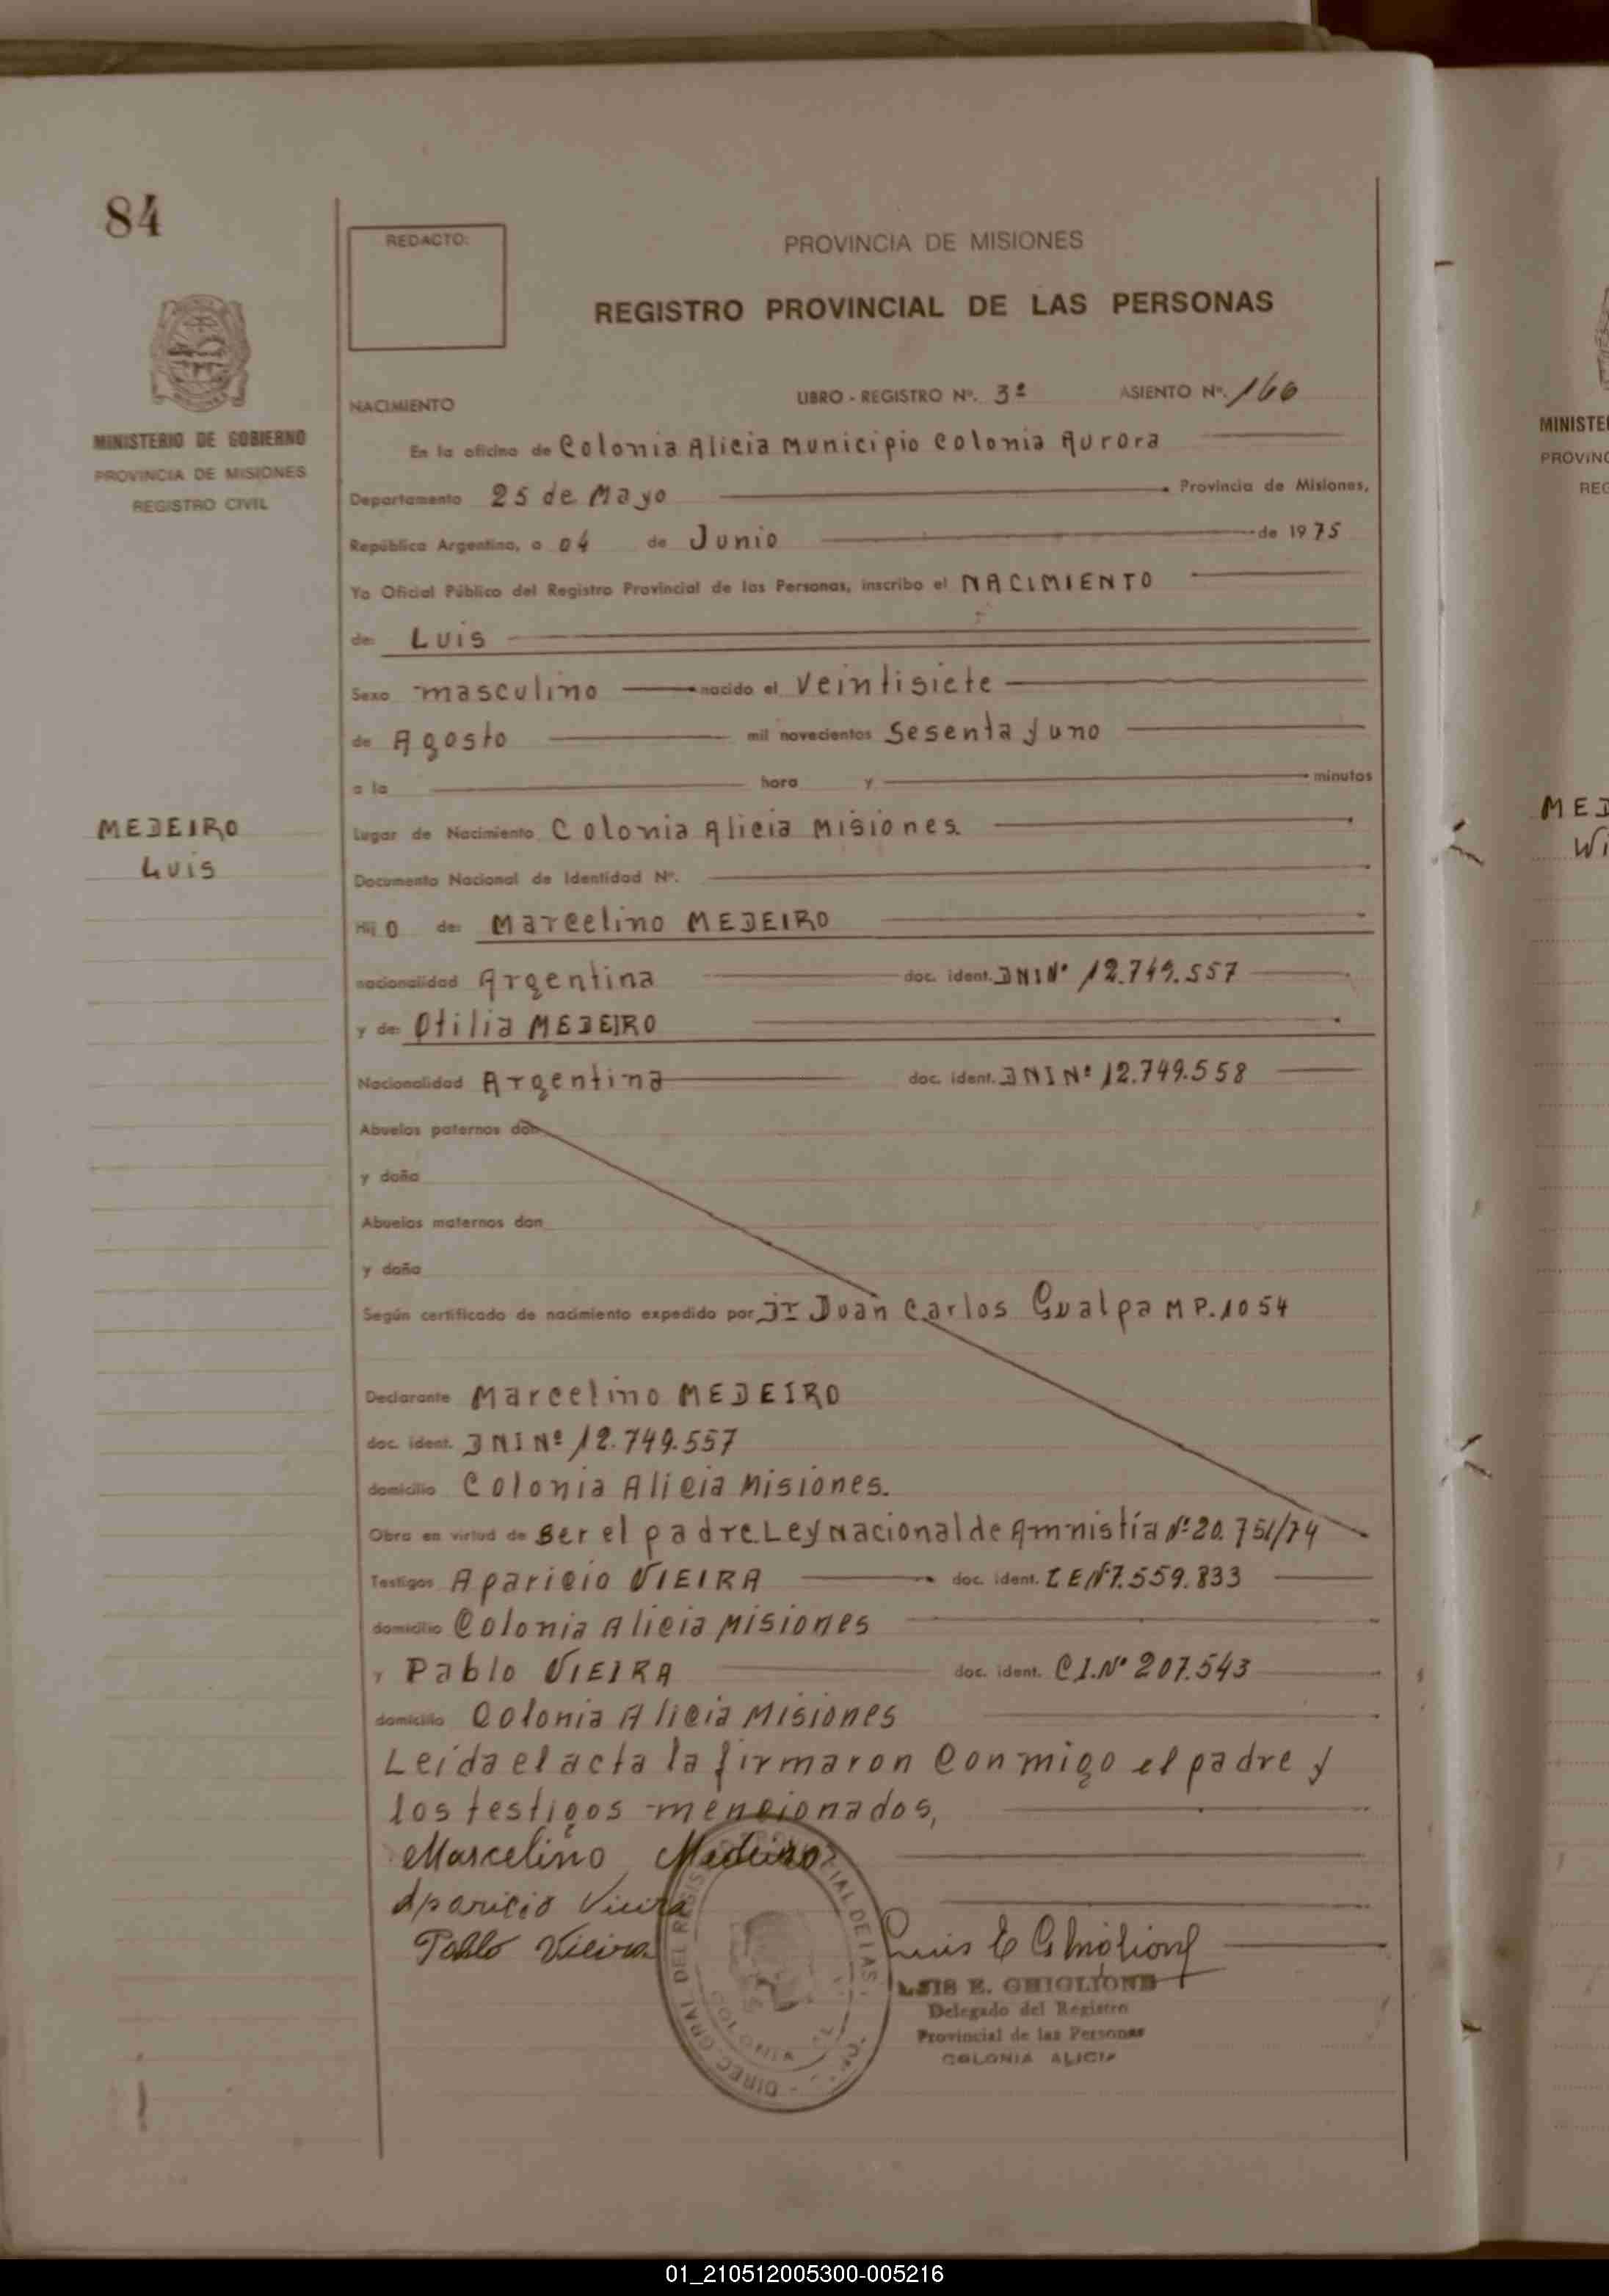 84
REDACTO:
PROVINCIA DE MISIONES
REGISTRO PROVINCIAL DE LAS PERSONAS
MINISTERIO DE GOBIERNO
PROVINCIA DE MISIONES
REGISTRO CIVIL
NACIMIENTO LIBRO - REGISTRO Nº. 3º ASIENTO Nº. 160
En la oficina de Colonia Alicia Municipio Colonia Aurora
Departamento 25 de Mayo Provincia de Misiones,
República Argentina, a 04 de Junio de 1975
Yo Oficial Público del Registro Provincial de las Personas, inscribo el NACIMIENTO
de: Luis
Sexo masculino nacido el Veintisiete
de Agosto mil novecientos Sesenta y uno
a la hora y minutos
MEDEIRO
Luis
Lugar de Nacimiento Colonia Alicia Misiones.
Documento Nacional de Identidad Nº.
Hij o de: Marcelino MEDEIRO
nacionalidad Argentina doc. ident. DNI Nº 12.749.557
y de: Otilia MEDEIRO
Nacionalidad Argentina doc. ident. DNI Nº 12.749.558
Abuelos paternos don
y doña
Abuelos maternos don
y doña
Según certificado de nacimiento expedido por Dr Juan Carlos Gualpa MP.1054
Declarante Marcelino MEDEIRO
doc. ident. DNI Nº 12.749.557
domicilio Colonia Alicia Misiones.
Obra en virtud de Ser el padre. Ley Nacional de Amnistía Nº 20.751/74
Testigos Aparicio VIEIRA doc. ident. LE Nº 7.559.833
domicilio Colonia Alicia Misiones
y Pablo VIEIRA doc. ident. C I. Nº 207.543
domicilio Colonia Alicia Misiones
Leída el acta la firmaron Conmigo el padre y
los testigos mencionados,
Marcelino Medeiro
Aparicio Vieira
Pablo Vieira
Luis E Ghiglione
LUIS E. GHIGLIONE
Delegado del Registro
Provincial de las Personas
COLONIA ALICIA
DIREC. GRAL DEL REGIS
CIAL DE LAS
COLONIA
MINISTE
PROVINC
REG
MED
Wi
01_210512005300-005216